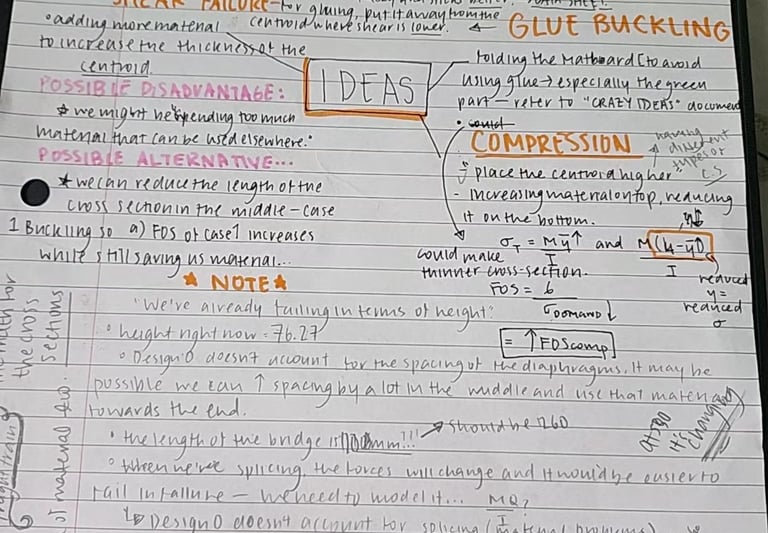 SHEAR FAILURE - for gluing, put it away from the
centroid where shear is lower.
• adding more material
to increase the thickness of the
centroid.
POSSIBLE DISADVANTAGE:
* we might be spending too much
material that can be used elsewhere.
POSSIBLE ALTERNATIVE...
* we can reduce the length of the
cross section in the middle - case
1 Buckling so a) FOS of case 1 increases
while still saving us material...
IDEAS
← GLUE BUCKLING
Folding the Matboard (to avoid
using glue → especially the green
part — refer to "CRAZY IDEAS" document
• could
COMPRESSION
having different
place the centroid higher
- increasing material on top, reducing
it on the bottom.
σT = Mȳ↑ and M(h-ȳ)
I I
could make
thinner cross-section.
reduced
y =
reduced
σ
FOS = 6
σDEMAND ↓
= ↑ FOScomp
★ NOTE ★
"We're already failing in terms of height:
• height right now = 76.27
• Design 0 doesn't account for the spacing of the diaphragms. It may be
possible we can ↑ spacing by a lot in the middle and use that material
towards the end.
• the length of the bridge is !!! → should be 1260
• When we're splicing, the forces will change and it would be easier to
fail in failure — we need to model it... MQ?
↳ Design 0 doesn't account for splicing
it's changing
the cross
sections